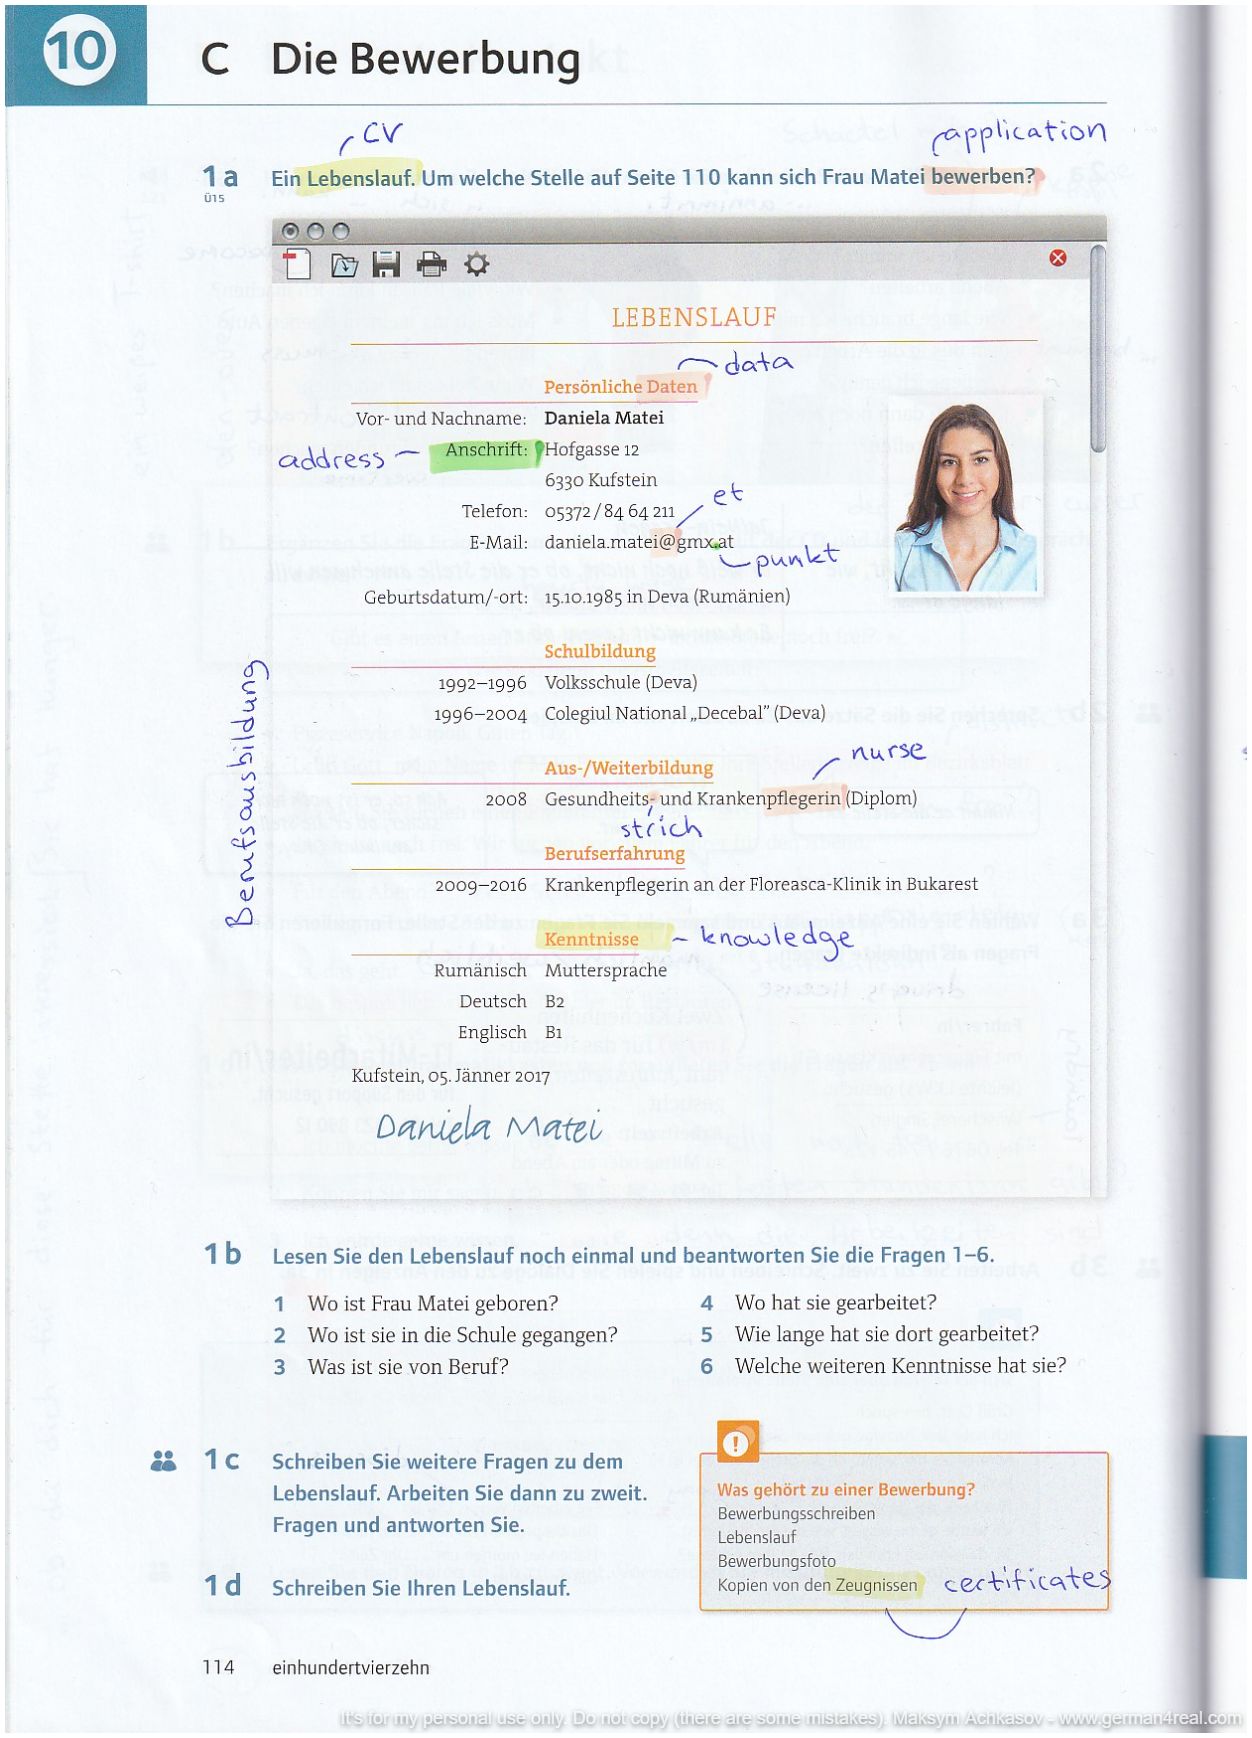 10
C Die Bewerbung
CV
application
1a Ein Lebenslauf. Um welche Stelle auf Seite 110 kann sich Frau Matei bewerben?
Ü15
LEBENSLAUF
data
Persönliche Daten
Vor- und Nachname: Daniela Matei
address
Anschrift: Hofgasse 12
6330 Kufstein
et
Telefon: 05372/84 64 211
E-Mail: daniela.matei@gmx.at
punkt
Geburtsdatum/-ort: 15.10.1985 in Deva (Rumänien)
Berufsausbildung
Schulbildung
1992–1996 Volksschule (Deva)
1996–2004 Colegiul National „Decebal“ (Deva)
nurse
Aus-/Weiterbildung
2008 Gesundheits- und Krankenpflegerin (Diplom)
strich
Berufserfahrung
2009–2016 Krankenpflegerin an der Floreasca-Klinik in Bukarest
Kenntnisse
knowledge
Rumänisch Muttersprache
Deutsch B2
Englisch B1
Kufstein, 05. Jänner 2017
Daniela Matei
1b Lesen Sie den Lebenslauf noch einmal und beantworten Sie die Fragen 1–6.
1 Wo ist Frau Matei geboren?
2 Wo ist sie in die Schule gegangen?
3 Was ist sie von Beruf?
4 Wo hat sie gearbeitet?
5 Wie lange hat sie dort gearbeitet?
6 Welche weiteren Kenntnisse hat sie?
1c Schreiben Sie weitere Fragen zu dem
Lebenslauf. Arbeiten Sie dann zu zweit.
Fragen und antworten Sie.
1d Schreiben Sie Ihren Lebenslauf.
!
Was gehört zu einer Bewerbung?
Bewerbungsschreiben
Lebenslauf
Bewerbungsfoto
Kopien von den Zeugnissen
certificates
114 einhundertvierzehn
It's for my personal use only. Do not copy (there are some mistakes). Maksym Achkasov - www.german4real.com